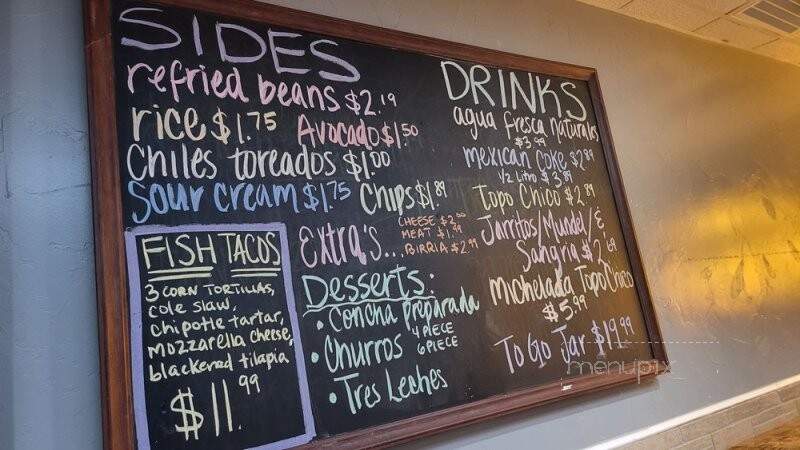 SIDES
refried beans $2.19
rice $1.75 Avocado $1.50
Chiles toreados $1.00
Sour cream $1.75 Chips $1.89
Extra's...
CHEESE $2.00
MEAT $1.99
BIRRIA $2.99
FISH TACOS
3 CORN TORTILLAS,
cole slaw,
chipotle tartar,
Mozzarella cheese,
blackened tilapia
$11.99
Desserts:
• Concha Preparada
• Churros 4 PIECE
6 PIECE
• Tres Leches
DRINKS
agua fresca naturales
$3.99
mexican coke $2.89
1/2 Litro $3.89
Topo Chico $2.89
Jarritos/Mundet/&
Sangria $2.69
Michelada Topo Chico
$5.99
To Go Jar $19.99
menupix